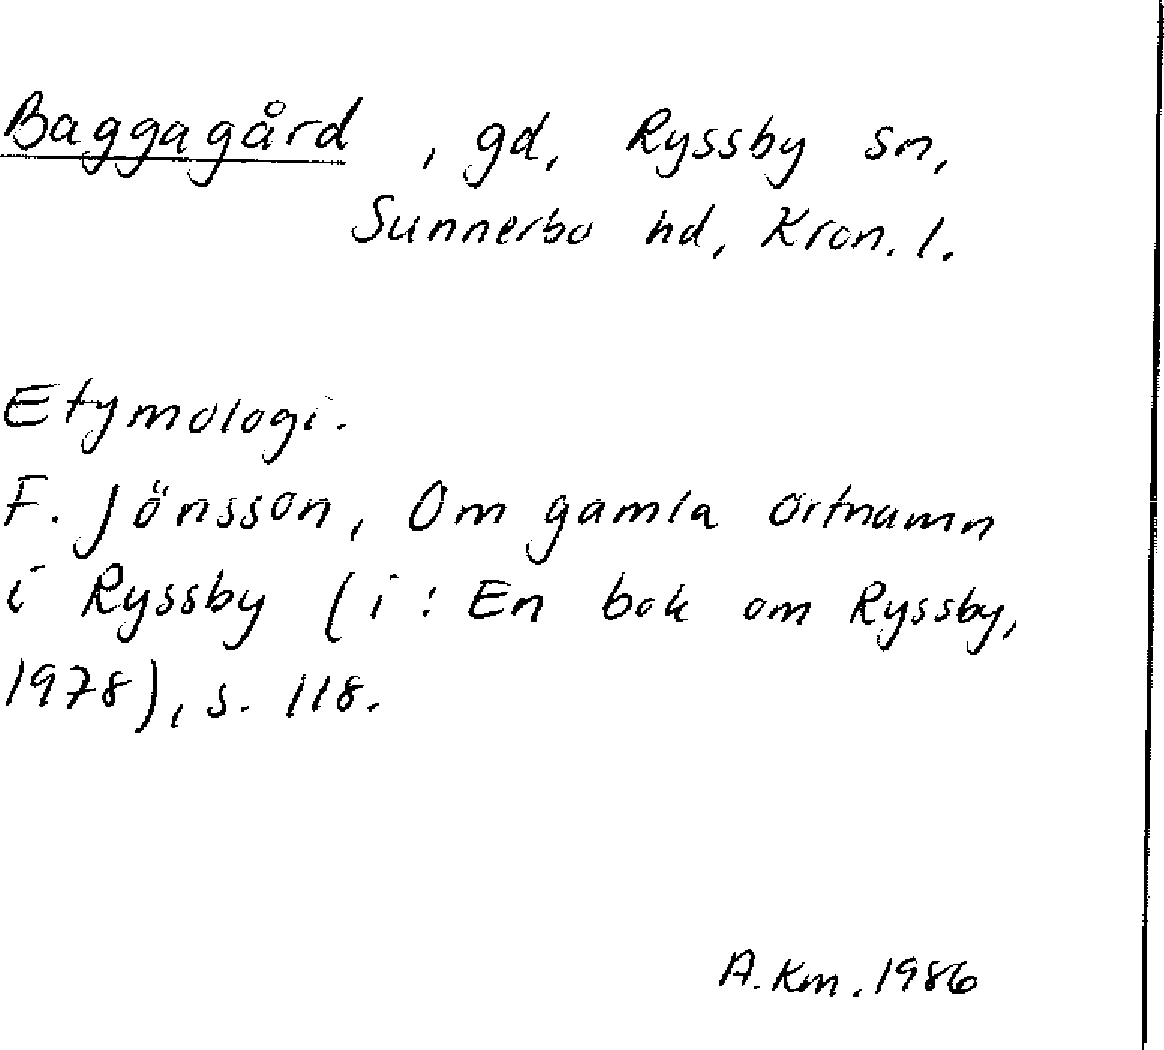 Baggagård , gd, Ryssby sn,
Sunnerbo hd, Kron. l.
Etymologi.
F. Jönsson, Om gamla ortnamn
i Ryssby (i: En bok om Ryssby,
1978), s. 118.
A. Km. 1986